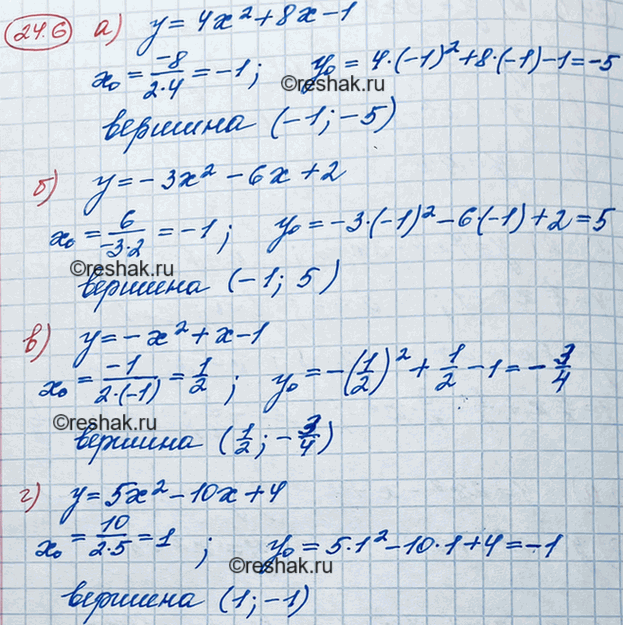 24.6 а) y = 4x² + 8x - 1
x₀ = -8/(2·4) = -1; y₀ = 4·(-1)² + 8·(-1) - 1 = -5
©reshak.ru
вершина (-1; -5)
б) y = -3x² - 6x + 2
x₀ = 6/(-3·2) = -1; y₀ = -3·(-1)² - 6(-1) + 2 = 5
©reshak.ru
вершина (-1; 5)
в) y = -x² + x - 1
x₀ = -1/(2·(-1)) = 1/2; y₀ = -(1/2)² + 1/2 - 1 = -3/4
©reshak.ru
вершина (1/2; -3/4)
г) y = 5x² - 10x + 4
x₀ = 10/(2·5) = 1; y₀ = 5·1² - 10·1 + 4 = -1
©reshak.ru
вершина (1; -1)